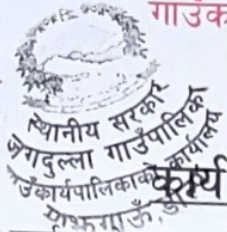 गाउँक
स्थानीय सरकार
जगदुल्ला गाउँपालिका
गाउँकार्यपालिकाको कार्यालय
कार्य